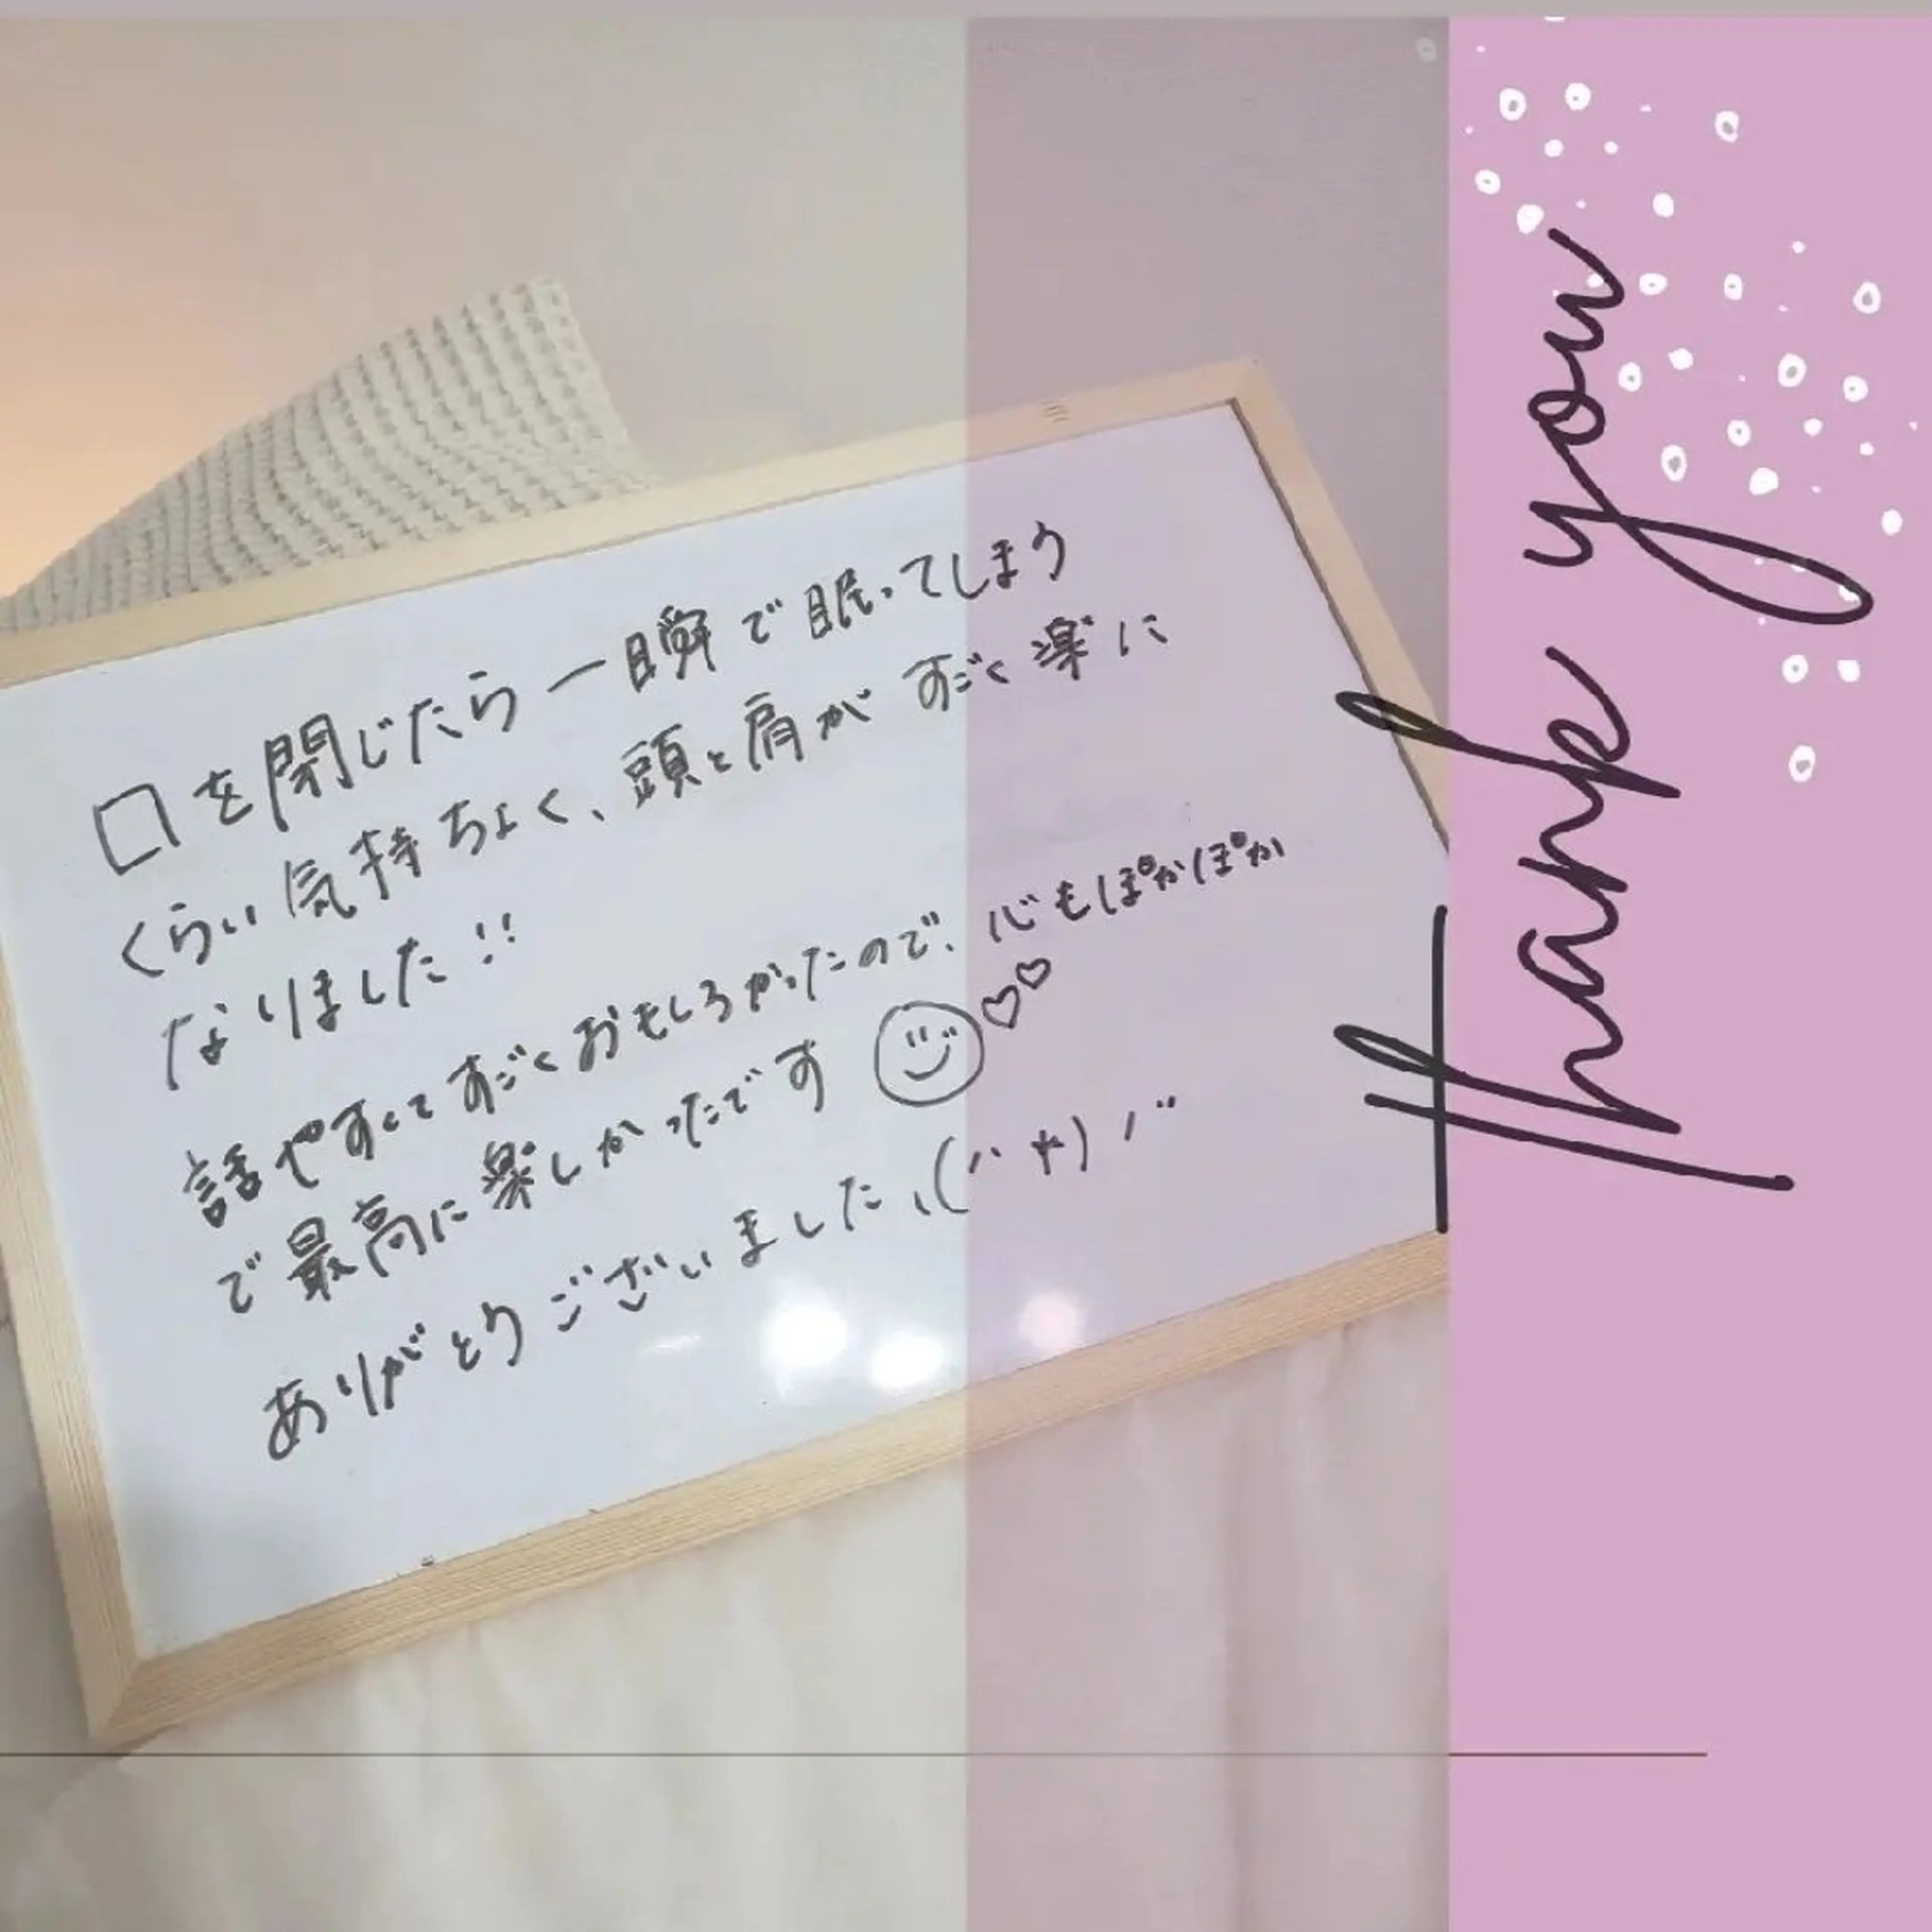 口を閉じたら一瞬で眠ってしまう
くらい気持ちよく、頭と肩がすごく楽に
なりました!!
話やすくてすごくおもしろかったので、心もぽかぽか
で最高に楽しかったです
ありがとうございました
Thank you